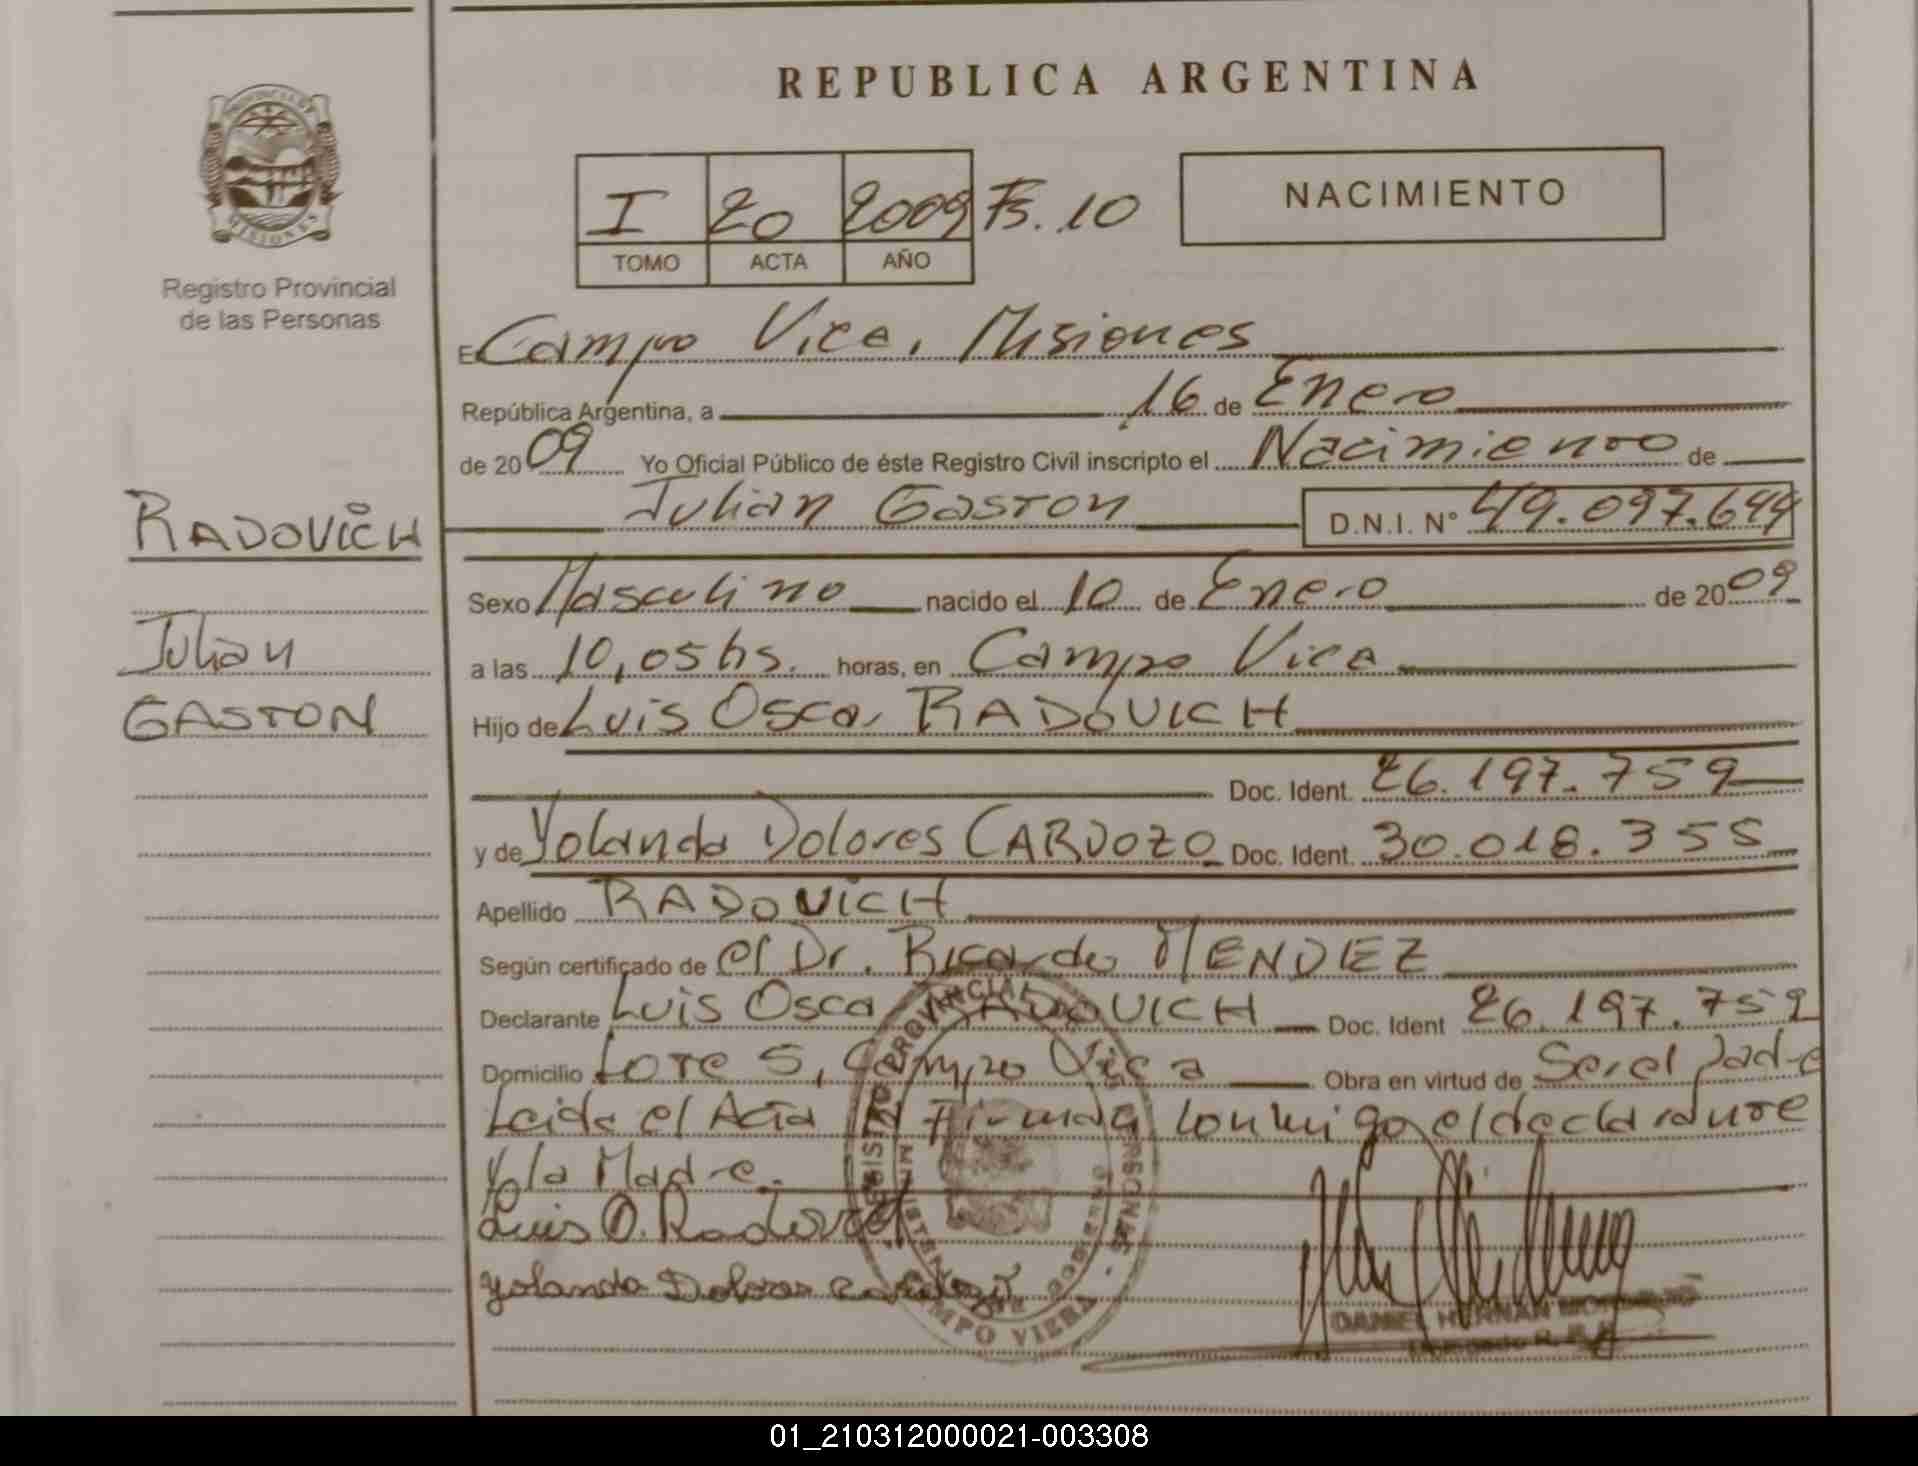 REPUBLICA ARGENTINA
PROVINCIA DE
MISIONES
Registro Provincial
de las Personas
I 20 2009 Fs. 10
TOMO ACTA AÑO
NACIMIENTO
En Campo Viera, Misiones
República Argentina, a 16 de Enero
de 2009 Yo Oficial Público de éste Registro Civil inscripto el Nacimiento de
Julian Gaston D.N.I. Nº 49.097.644
RADOVICH
Julian
GASTON
Sexo Masculino nacido el 10 de Enero de 2009
a las 10,05 hs. horas, en Campo Viera
Hijo de Luis Oscar RADOVICH
Doc. Ident. 26.197.759
y de Yolanda Dolores CARDOZO Doc. Ident. 30.018.355
Apellido RADOVICH
Según certificado de el Dr. Ricardo MENDEZ
Declarante Luis Oscar RADOVICH Doc. Ident 26.197.759
Domicilio Lote 5, Campo Viera Obra en virtud de Ser el padre
Leida el Acta Firman conmigo el declarante
y la Madre.
Luis O. Radovich
Yolanda Dolores Cardozo
REGISTRO PROVINCIAL DE LAS PERSONAS
MINISTERIO DE GOBIERNO
CAMPO VIERA
DANIEL HERNAN
01_210312000021-003308